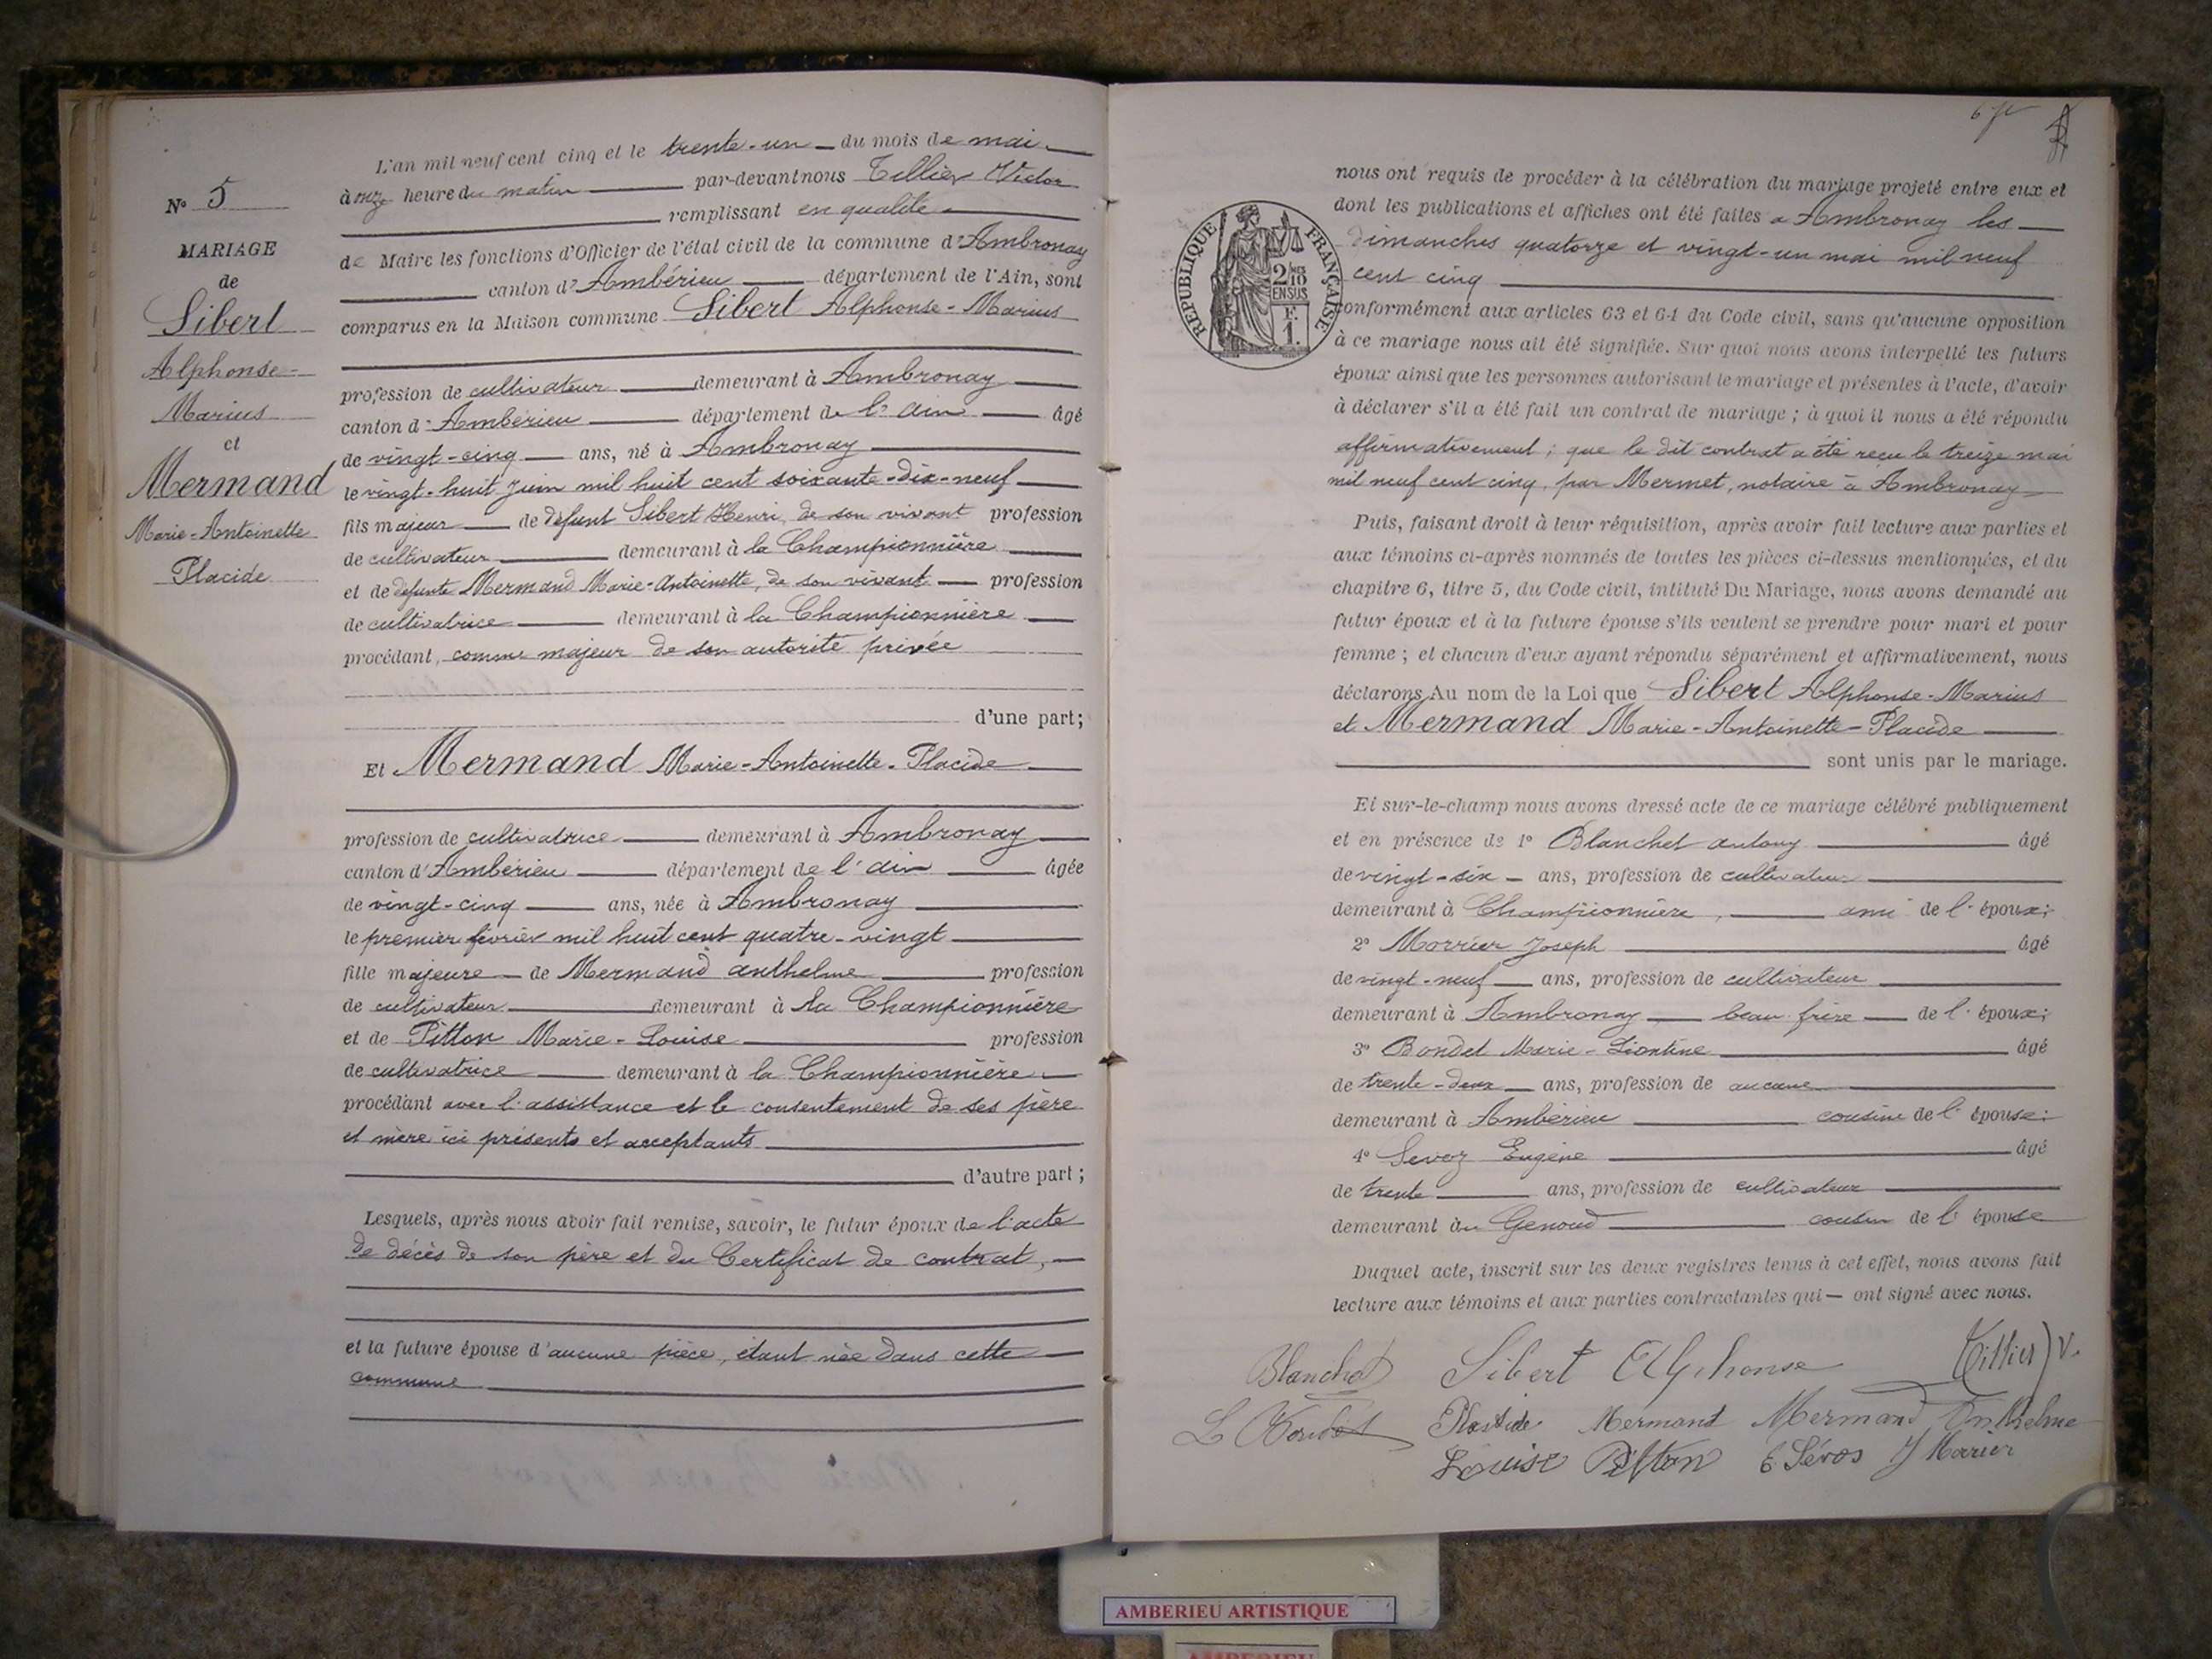 N° 5
MARIAGE
de
Sibert
Alphonse-
Marius
et
Mermand
Marie-Antoinette
Placide
L'an mil neuf cent cinq et le trente-un du mois de mai
à onze heure du matin par-devant nous Tillier Victor
remplissant en qualité
de Maire les fonctions d'Officier de l'état civil de la commune d'Ambronay
canton d'Ambérieu département de l'Ain, sont
comparus en la Maison commune Sibert Alphonse-Marius
profession de cultivateur demeurant à Ambronay
canton d'Ambérieu département de l'ain âgé
de vingt-cinq ans, né à Ambronay
le vingt-huit Juin mil huit cent soixante-dix-neuf
fils majeur de défunt Sibert Henri, de son vivant profession
de cultivateur demeurant à la Championnière
et de défunte Mermand Marie-Antoinette, de son vivant profession
de cultivatrice demeurant à la Championnière
procédant, comme majeur de son autorité privée
d'une part;
Et Mermand Marie-Antoinette-Placide
profession de cultivatrice demeurant à Ambronay
canton d'Ambérieu département de l'ain âgée
de vingt-cinq ans, née à Ambronay
le premier février mil huit cent quatre-vingt
fille majeure de Mermand anthelme profession
de cultivateur demeurant à la Championnière
et de Pitton Marie-Louise profession
de cultivatrice demeurant à la Championnière
procédant avec l'assistance et le consentement de ses père
et mère ici présents et acceptants
d'autre part;
Lesquels, après nous avoir fait remise, savoir, le futur époux de l'acte
de décès de son père et du Certificat de contrat,
et la future épouse d'aucune pièce, étant née dans cette
commune
nous ont requis de procéder à la célébration du mariage projeté entre eux et
dont les publications et affiches ont été faites a Ambronay les
dimanches quatorze et vingt-un mai mil neuf
cent cinq
RÉPUBLIQUE FRANÇAISE
2/10 MES
EN SUS
F.
1.
conformément aux articles 63 et 64 du Code civil, sans qu'aucune opposition
à ce mariage nous ait été signifiée. Sur quoi nous avons interpellé les futurs
époux ainsi que les personnes autorisant le mariage et présentes à l'acte, d'avoir
à déclarer s'il a été fait un contrat de mariage; à quoi il nous a été répondu
affirmativement; que le dit contrat a été reçu le treize mai
mil neuf cent cinq, par Mermet, notaire à Ambronay
Puis, faisant droit à leur réquisition, après avoir fait lecture aux parties et
aux témoins ci-après nommés de toutes les pièces ci-dessus mentionnées, et du
chapitre 6, titre 5, du Code civil, intitulé Du Mariage, nous avons demandé au
futur époux et à la future épouse s'ils veulent se prendre pour mari et pour
femme; et chacun d'eux ayant répondu séparément et affirmativement, nous
déclarons Au nom de la Loi que Sibert Alphonse-Marius
et Mermand Marie-Antoinette-Placide
sont unis par le mariage.
Et sur-le-champ nous avons dressé acte de ce mariage célébré publiquement
et en présence de 1° Blanchet antony âgé
de vingt-six ans, profession de cultivateur
demeurant à Championnière, ami de l'époux;
2° Morrier Joseph âgé
de vingt-neuf ans, profession de cultivateur
demeurant à Ambronay beau frère de l'époux;
3° Bondet Marie-Léontine âgé
de trente-deux ans, profession de aucune
demeurant à Ambérieu cousine de l'épouse;
4° Sevoz Eugène âgé
de trente ans, profession de cultivateur
demeurant au Genoud cousin de l'épouse
Duquel acte, inscrit sur les deux registres tenus à cet effet, nous avons fait
lecture aux témoins et aux parties contractantes qui ont signé avec nous.
Blanchet Sibert Alphonse Tillier V.
L Bondet Placide Mermand Mermand Anthelme
Louise Pitton E Sévos J Morier
AMBERIEU ARTISTIQUE
AMBERIEU